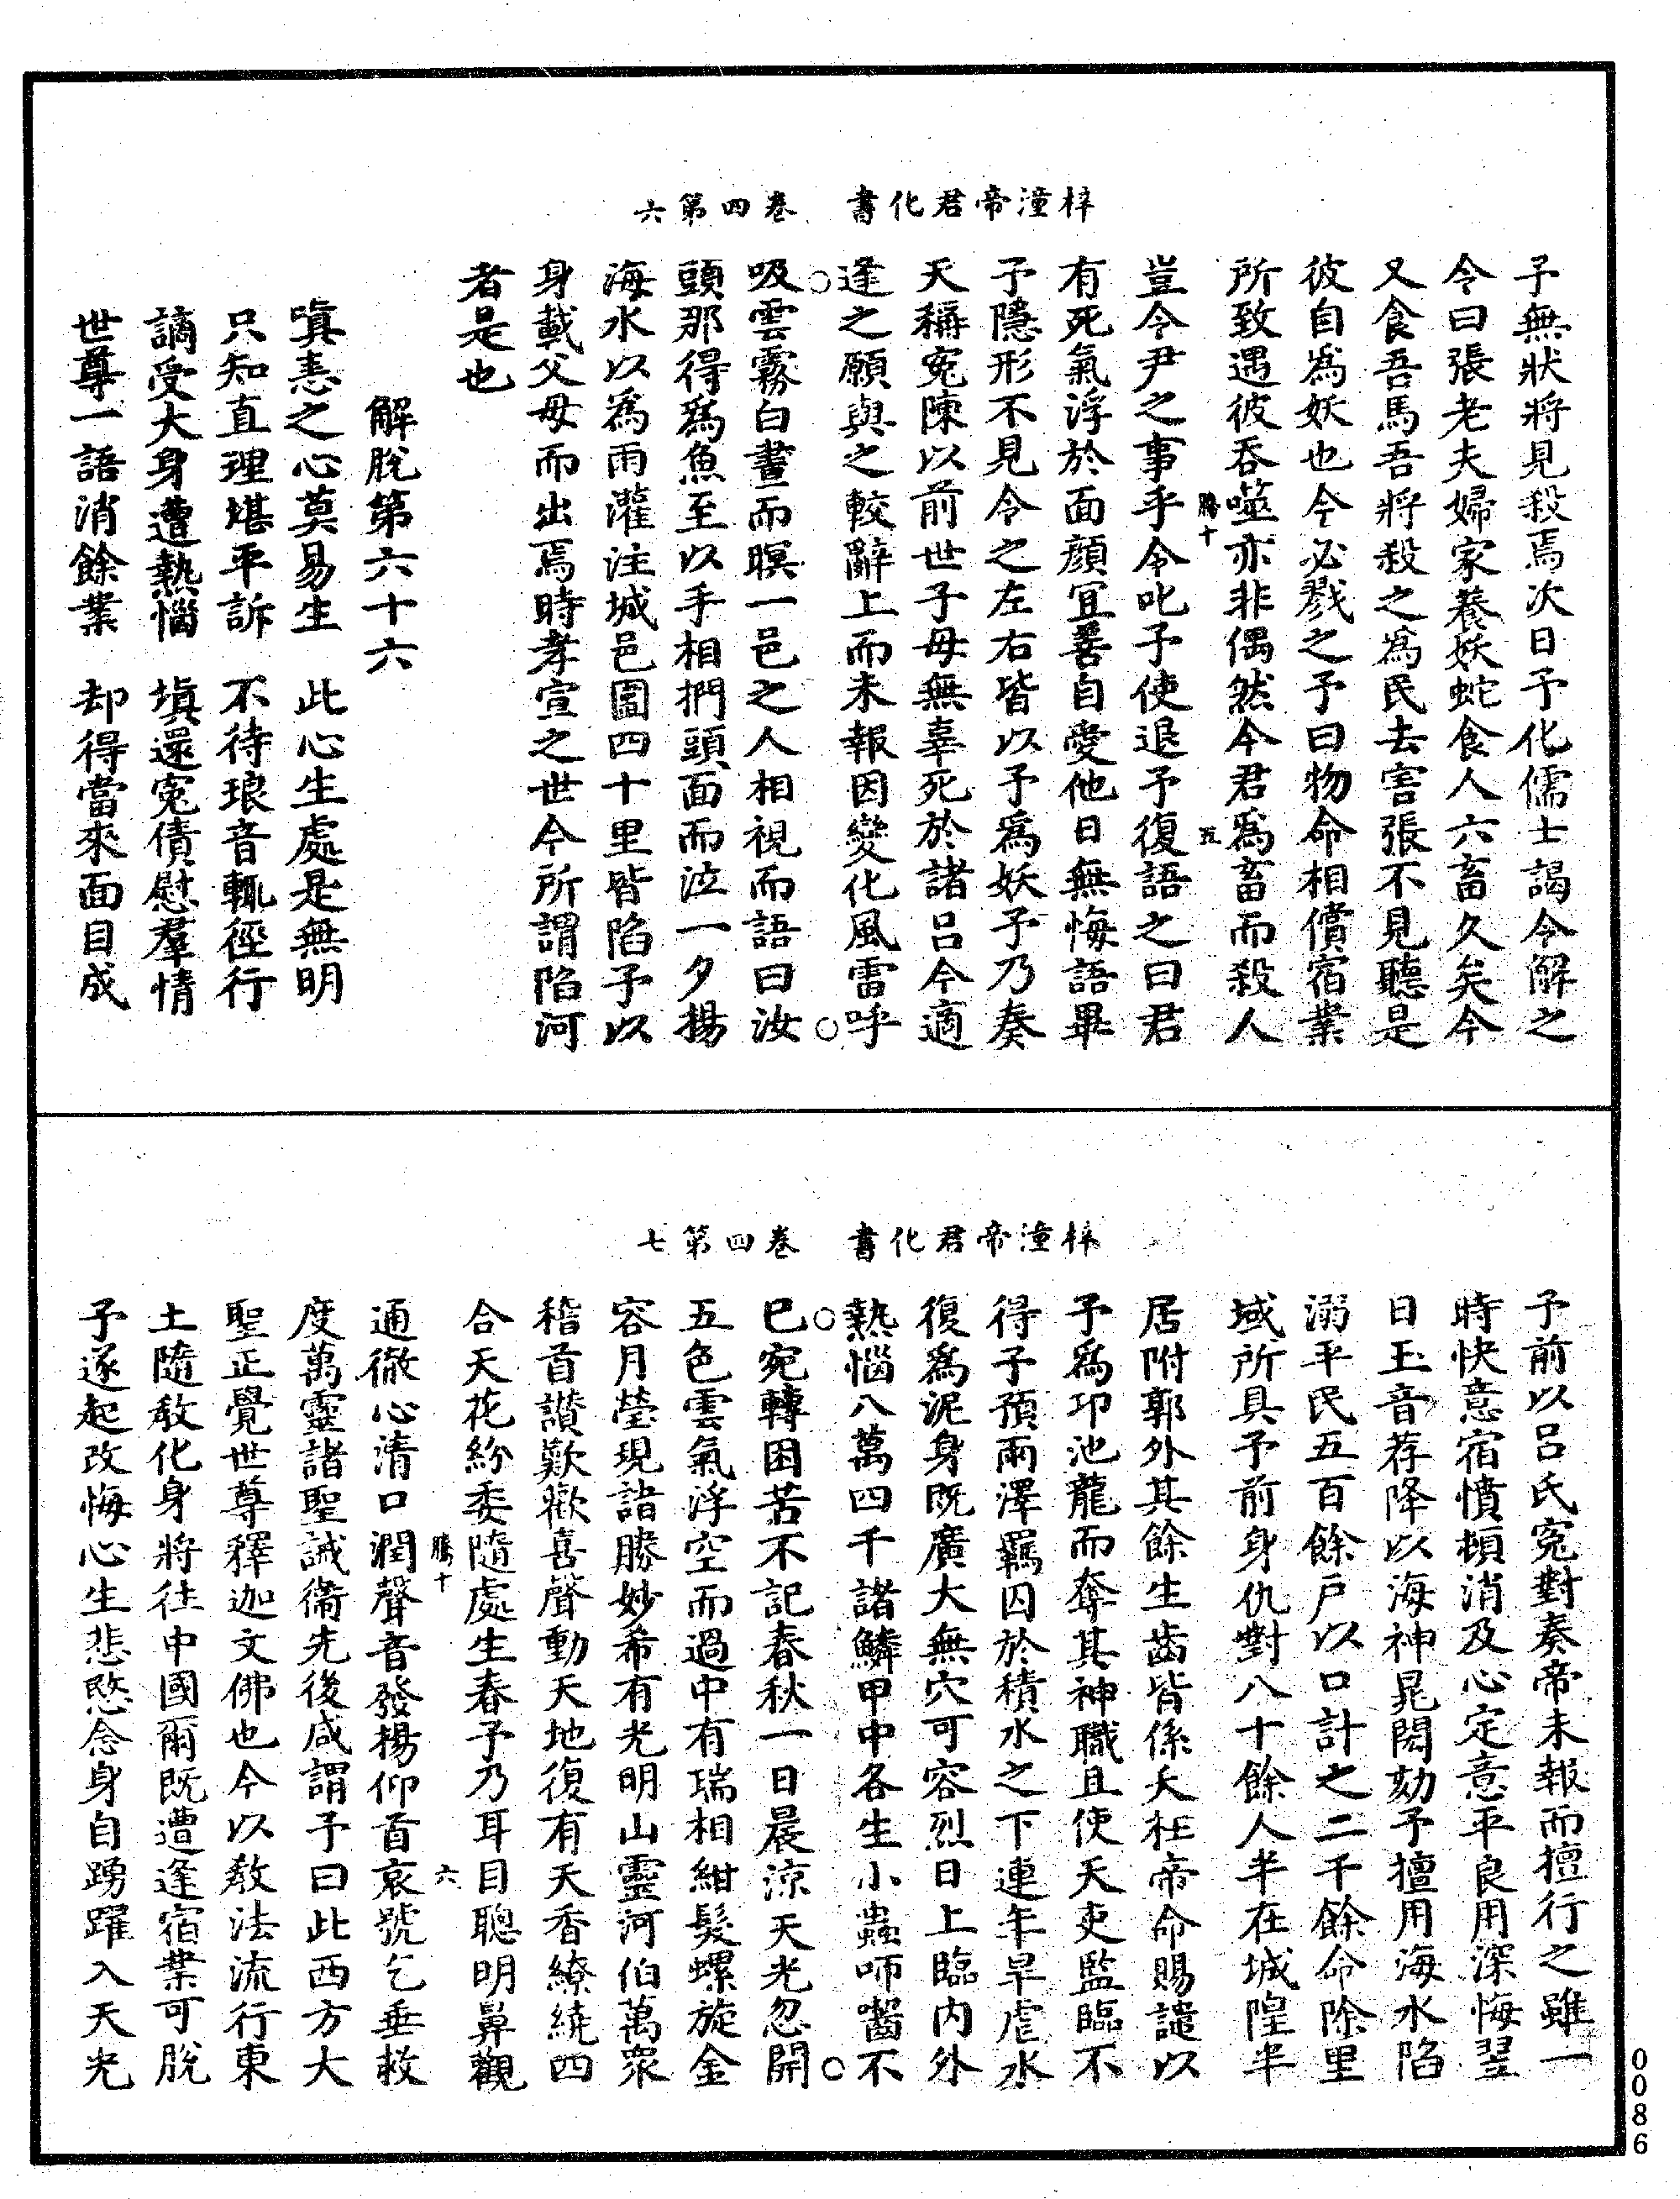 梓潼帝君化書　卷四第六
子無狀將見殺焉次日予化儒士謁令解之
令曰張老夫婦家養妖蛇食人六畜久矣今
又食吾馬吾將殺之爲民去害張不見聽是
彼自爲妖也今必戮之予曰物命相償宿業
所致遇彼吞噬亦非偶然今君爲畜而殺人
騰十　五
豈令尹之事乎令叱予使退予復語之曰君
有死氣浮於面顔宜善自愛他日無悔語畢
予隱形不見令之左右皆以予爲妖予乃奏
天稱寃陳以前世子母無辜死於諸呂今適
逢之願與之較辭上而未報因變化風雷呼
吸雲霧白晝而瞑一邑之人相視而語曰汝
頭那得爲魚至以手相捫頭面而泣一夕揚
海水以爲雨灌注城邑圍四十里皆陷予以
身載父母而出焉時孝宣之世今所謂陷河
者是也
解脫第六十六
嗔恚之心莫易生　此心生處是無明
只知直理堪平訴　不待琅音輒徑行
謫受大身遭熱惱　填還寃債慰羣情
世尊一語消餘業　却得當來面目成
梓潼帝君化書　卷四第七
予前以呂氏寃對奏帝未報而擅行之雖一
時快意宿憤頓消及心定意平良用深悔翌
日玉音荐降以海神晁閎劾予擅用海水陷
溺平民五百餘戶以口計之二千餘命除里
域所具予前身仇對八十餘人半在城隍半
居附郭外其餘生齒皆係夭枉帝命賜譴以
予爲卭池龍而奪其神職且使天吏監臨不
得予預雨澤羈囚於積水之下連年旱虐水
復爲泥身旣廣大無穴可容烈日上臨內外
熱惱八萬四千諸鱗甲中各生小蟲咂嚙不
已宛轉困苦不記春秋一日晨涼天光忽開
五色雲氣浮空而過中有瑞相紺髮螺旋金
容月瑩現諸勝妙希有光明山靈河伯萬衆
稽首讚歎歡喜聲動天地復有天香繚繞四
合天花紛委隨處生春予乃耳目聰明鼻觀
騰十　六
通徹心清口潤聲音發揚仰首哀號乞垂救
度萬靈諸聖誡衞先後咸謂予曰此西方大
聖正覺世尊釋迦文佛也今以教法流行東
土隨教化身將往中國爾旣遭逢宿業可脫
予遂起改悔心生悲愍念身自踴躍入天光
0086